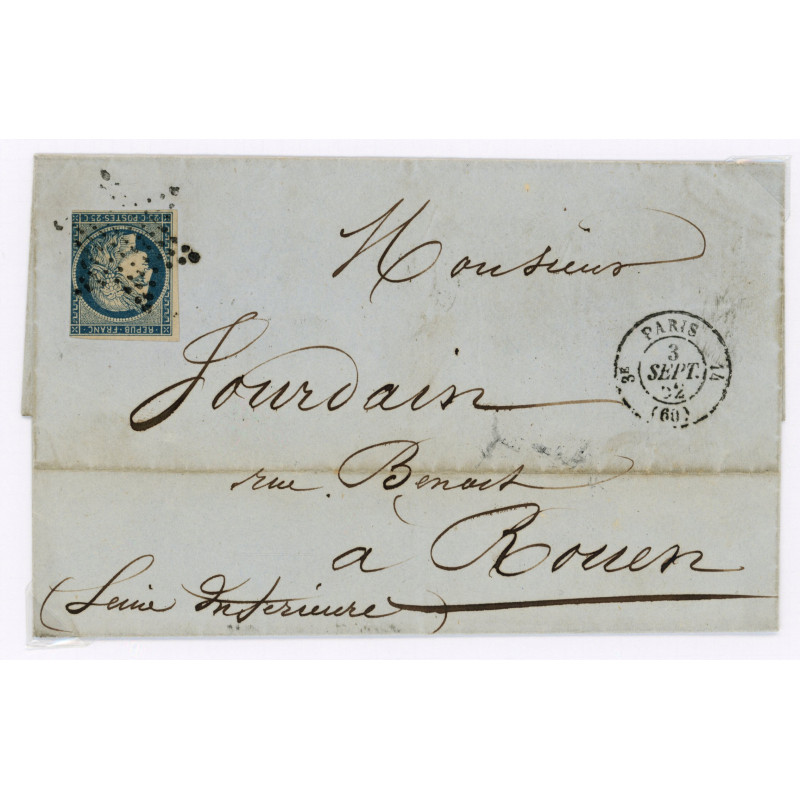 25 C POSTES 25 C
REPUB. FRANC.
Monsieur
Jourdain
rue Benoit
à Rouen
(Seine Inférieure)
PARIS
3E
3
SEPT.
52
14
(60)